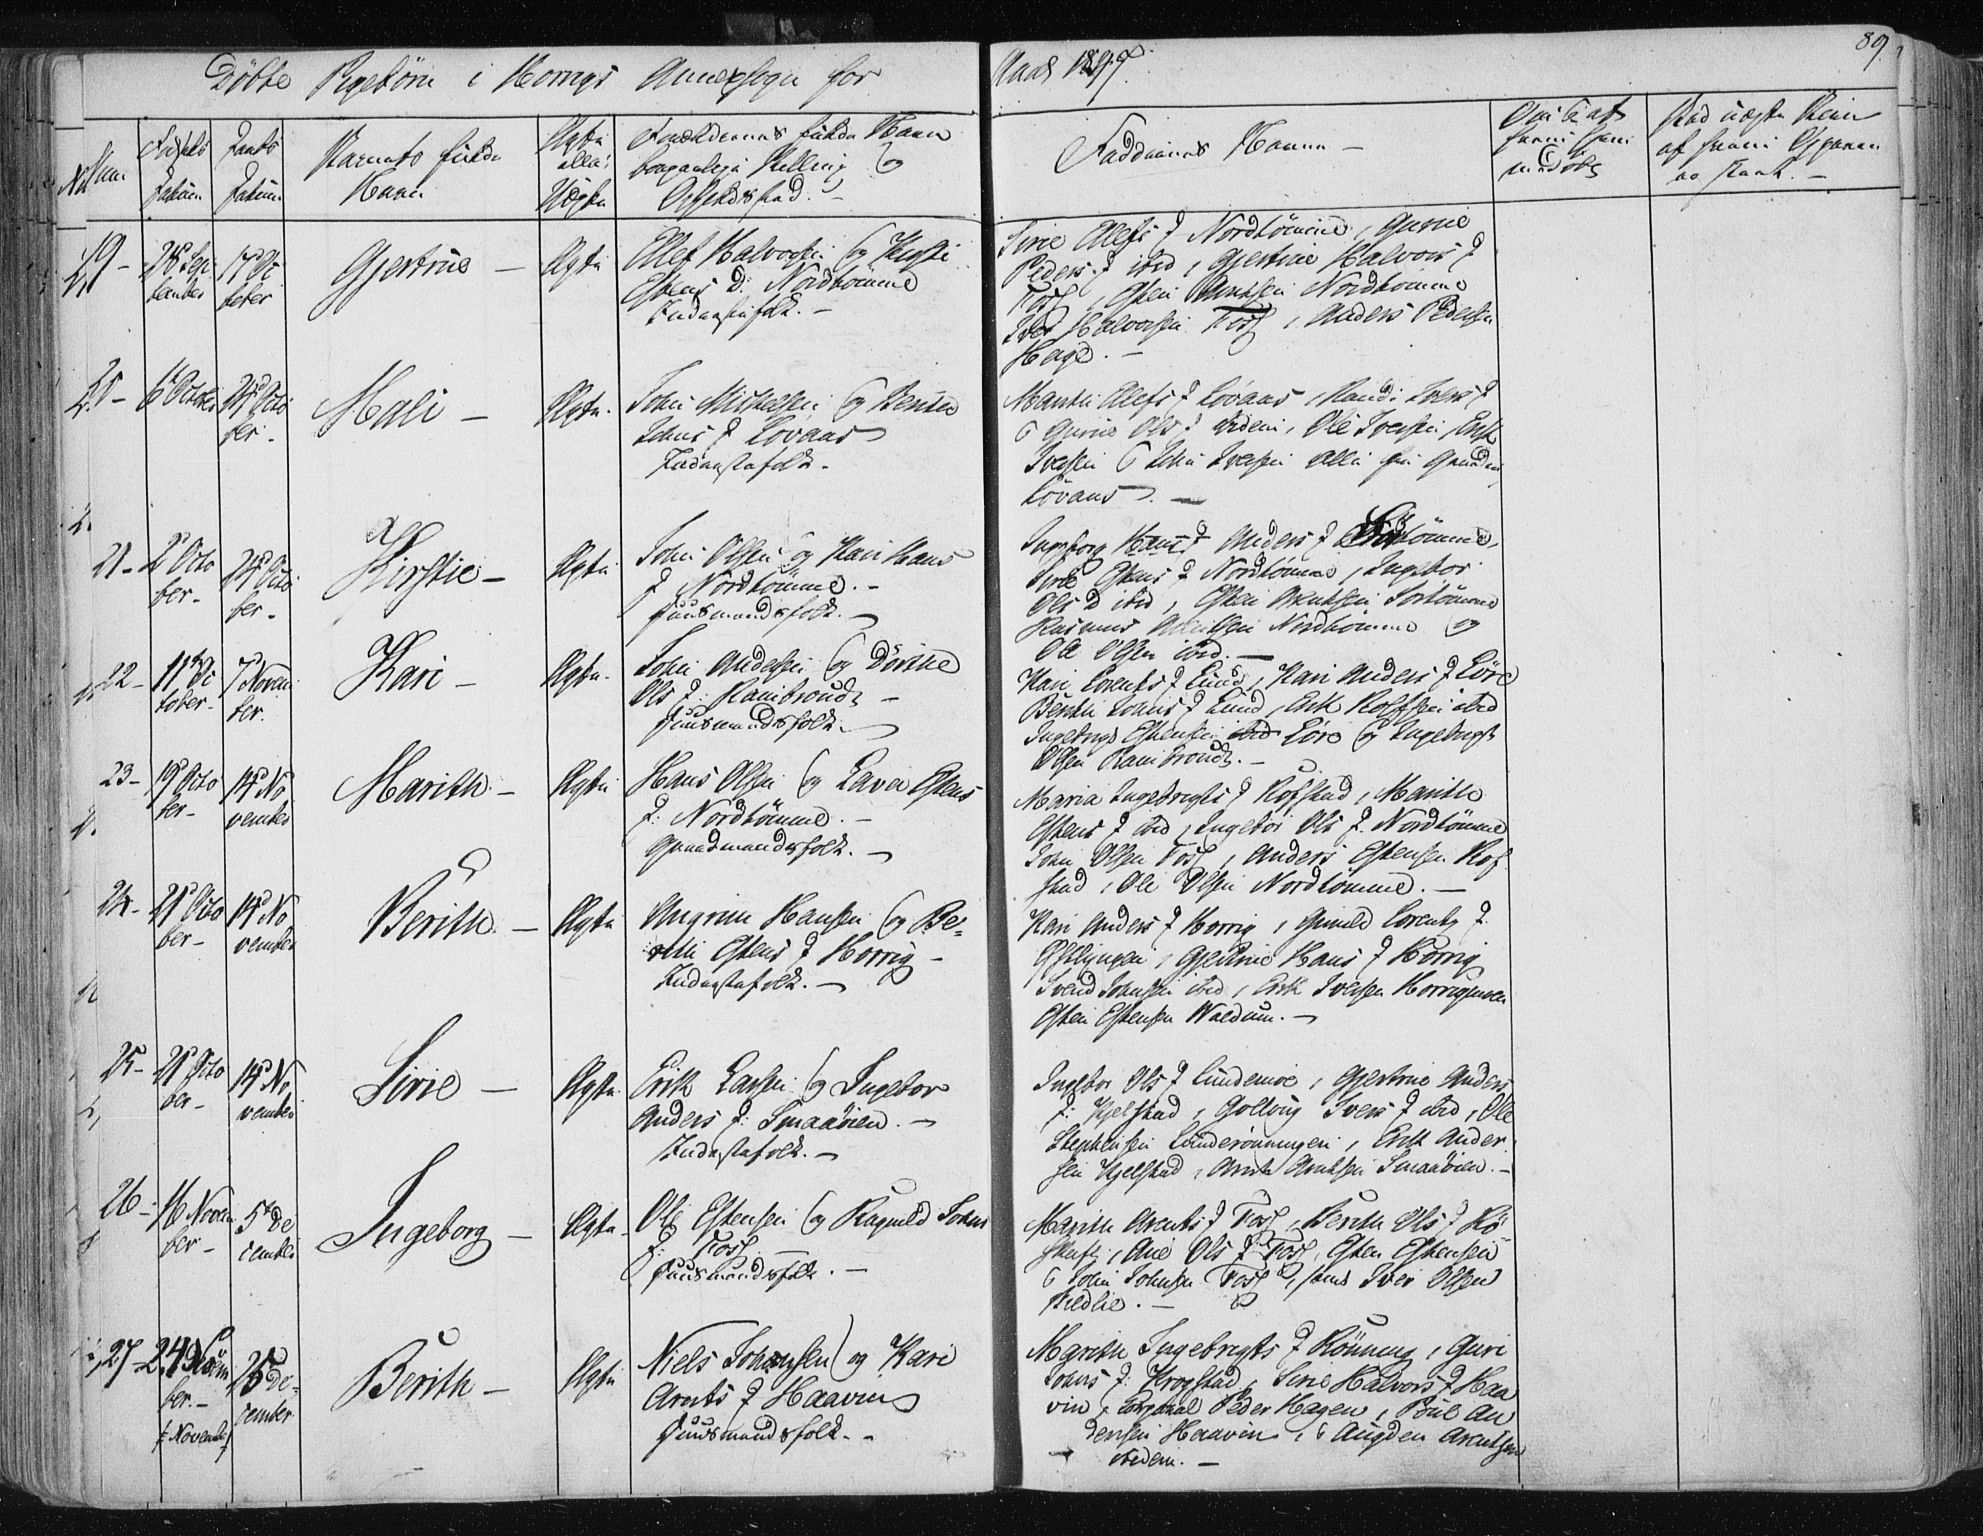 89
Döbte Pigebörn i Horrigs Annexsogn for Aaret 1847.
Num
Födsels Datum
Daabs Datum
Barnets fulde Navn
Ægte eller Uægte
Forældrenes fulde Navn borgerlige Stilling og Opholdssted.
Faddernes Navne
19 -
28 September
17 October
Gjertrue -
Ægte
Ellef Halvorsen og Kirsti
Estens D: Nordtömme
Inderstefolk. -
Sirie Olefs D Nordtömme, Gurie
Peders D ibid, Gjertrue Halvors D
Foss, Esten Arntsen Nordtömme
Iver Halvorsen Foss, Anders Pedersen
Hage. -
20 -
6 October
24 October -
Mali -
Ægte.
John Mikkelsen og Berith
Johns D Lovaas
Inderstefolk -
Marith Olefs D Lövaas, Randi Ivers D
& Gurie Ols D ibidem, Ole Iversen, Erik
Iversen & John Iversen alle fra Gaarden
Lövaas. -
21 -
2 October -
24 October -
Kirstie -
Ægte
John Olsen og Kari Hans
D Nordtömme. -
Huusmandsfolk. -
Ingeborg Hans D Anders D Sörtömme,
Sirie Estens D Nordtömme, Ingebor
Ols D ibid, Esten Arntsen Sörtömme
Rasmus Arntsen Nordtömme og
Ole Olsen ibid. -
22 -
11 October -
7 November.
Kari -
Ægte.
John Andersen og Dörthe
Ols D: Rambraut -
Huusmandsfolk. -
Kari Lorents D Lund, Kari Anders D Löre
Berith Johns D Lund, Erik Rolfsen ibid
Ingebrigt Estensen ibid Löre & Ingebrigt
Olsen Rambraut. -
23 -
19 October -
14 November
Marith. -
Ægte
Hans Olsen og Lava Estens
D: Nordtömme. -
Gaardmandsfolk. -
Maria Ingebrigts D Rofstad, Marith
Estens D ibid, Ingebor Ols D. Nordtömme
John Olsen Foss, Anders Estensen Rof
stad, Ole Olsen Nordtömme. -
24 -
21 October -
14 November
Berith. -
Ægte
Angrim Hansen og Be=
rith Estens D Horrig -
Inderstefolk. -
Kari Anders D Horrig, Gunild Lorents D.
Gjertrue Hans D Horrig
Svend Johnsen ibid, Erik Iversen Horrigmoen
Esten Estensen Waldum. -
25 -
21 October -
14 November
Sirie -
Ægte.
Erik Larsen og Ingebor
Anders D: Smaaöien. -
Inderstefolk. -
Ingebor Ols D Lundemoe, Gjertrue Anders
D: Kjelstad, Gollaug Ivers D ibid, Ole
Stephensen Lunderönningen, Erik Ander
sen Kjelstad, Arnt Arntsen Smaaöien. -
26 -
16 November -
5 December
Ingeborg -
Ægte -
Ole Estensen og Ragnild Johns
D: Foss
Huusmandsfolk. -
Marith Arnts D Foss, Berith Ols D Rö
, Ane Ols D Foss, Esten Estensen
& John Johnsen Foss, samt Iver Olsen
. -
27 -
24 November. -
November
26 December
Berith -
Ægte
Niels Johansen og Kari
Arnts D Haavin
Huusmandsfolk. -
Marith Ingebrigts D Rönning, Guri
Johns D: Krogstad, Sirie Halvors D Haa
vin, Corporal Peder Hagen, Poul An
dersen Haavin, & Augden Arntsen
ibidem. -